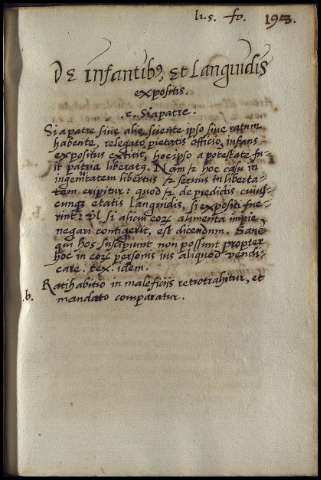 li. 5. fo. 193.
De Infantibꝰ, et Languidis
expositis.
.c. Si a patre.
Si a patre siue alio sciente ipso siue ratum
habente, relegato pietatis officio, infans
expositus extitit, hoc ipso a potestate fu
it patria liberatꝰ. Nam et hoc casu in
ingenuitatem libertus et seruus in liberta
tem eripitur: quod et de predictis cuius
cunqꝫ etatis languidis, si expositi fue
rint: Vl si alicui eorꝫ alimenta impie
negari contigerit, est dicendum. Sane
qui hos suscipiunt non possunt propter
hoc in eorꝫ personis ius aliquod vendi
care. tex. idem.
.b. Ratihabitio in maleficiis retrotrahitur, et
mandato comparatur.